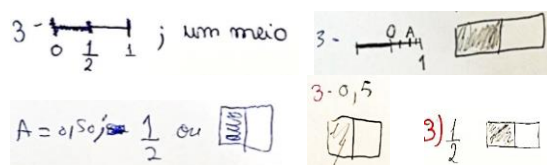 3- 0 1/2 1 ; um meio
3- 0 A 1
A = 0,50; 1/2 ou
3- 0,5
3) 1/2